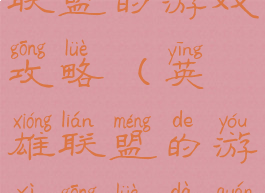 联盟的游戏
gōng lüè yīng
攻略(英
xióng lián méng de yóu
雄联盟的游